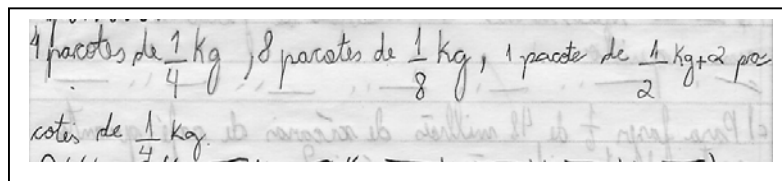 4 pacotes de 1/4 kg, 8 pacotes de 1/8 kg, 1 pacote de 1/2 kg + 2 pa
cotes de 1/4 kg.